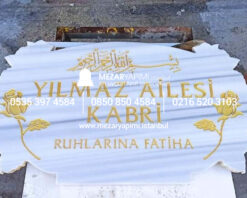 بسم الله الرحمن الرحيم
MEZARYAPIMI
YILMAZ AİLESİ
0535 397 4584 0850 850 4584 0216 520 3103
KABRİ
www.mezaryapimi.istanbul
RUHLARINA FATİHA